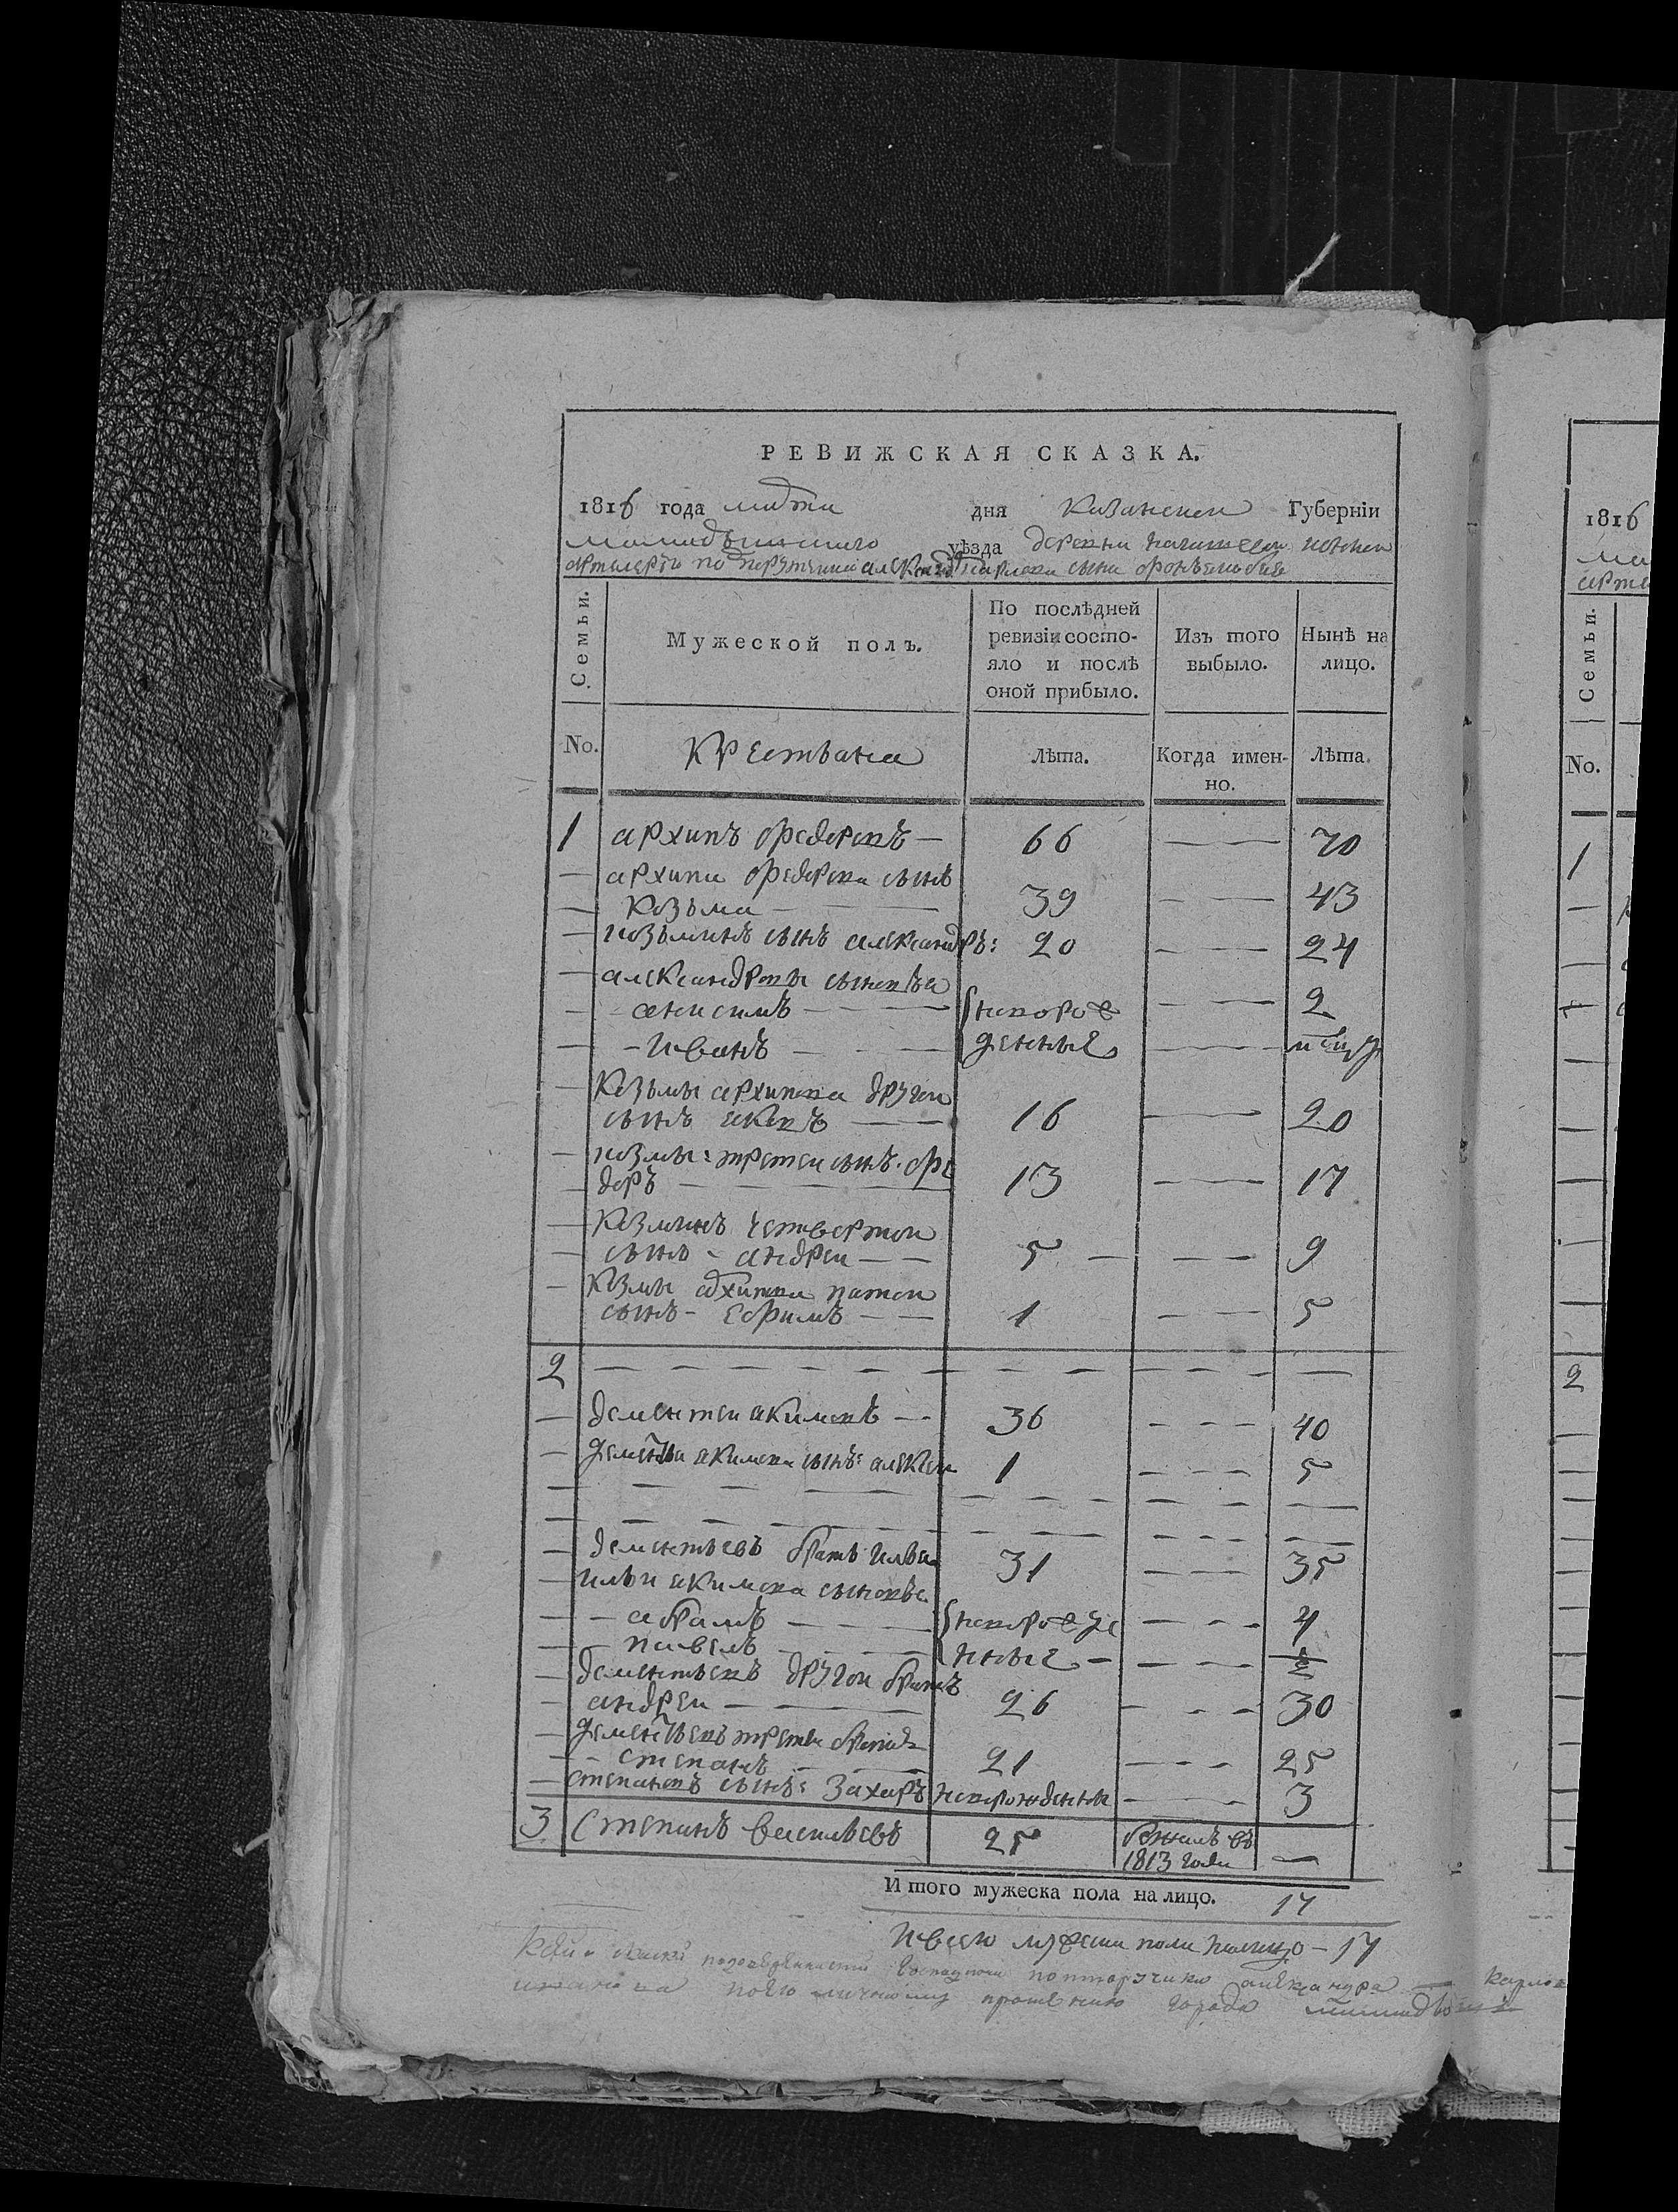 РЕВИЖСКАЯ СКАЗКА.
1816 года марта дня Казанской Губерніи
мамадышского уѣзда деревни
артилерги подпорутчика александра карлова сына
Семьи.
Мужеской полъ.
По послѣдней
ревизіи состо-
яло и послѣ
оной прибыло.
Изъ того
выбыло.
Нынѣ на
лицо.
No.
Крестьяне
Лѣта.
Когда имен-
но.
Лѣта.
1 архипъ федоровъ — 66 — 70
— архипа федорова сынъ
— козьма — 39 — 43
— козьминъ сынъ александръ: 20 — 24
— александровы сыновья
— анисимъ — новорож 2
— иванъ — денные —
— козьмы архипова другои
сынъ яковъ — 16 — 20
— козмы: третеи сынъ. фе
— доръ — 13 — 17
— козминъ четвертои
— сынъ - андреи — 5 — 9
— козмы архипова патои
сынъ - ефимъ — 1 — 5
2 —
— дементеи акимовъ — 36 — 40
— дементья акимова сынъ: алексеи 1 — 5
— дементьевъ братъ илья 31 — 35
— ильи акимова сыновья
— абрамъ — новорожде 4
— павелъ — нные —
— дементьевъ другои братъ
— андреи — 26 — 30
— дементьевъ трети братъ
— степанъ — 21 — 25
— степановъ сынъ: захаръ новорожденои — 3
3 степанъ васильевъ 25 бежалъ въ
1813 годе —
Итого мужеска пола на лицо. 17
Ивсего мужеска пола налицо - 17
подпорутчика александра карлова
поего личному прошению города
1816
Семьи.
No.
1
2